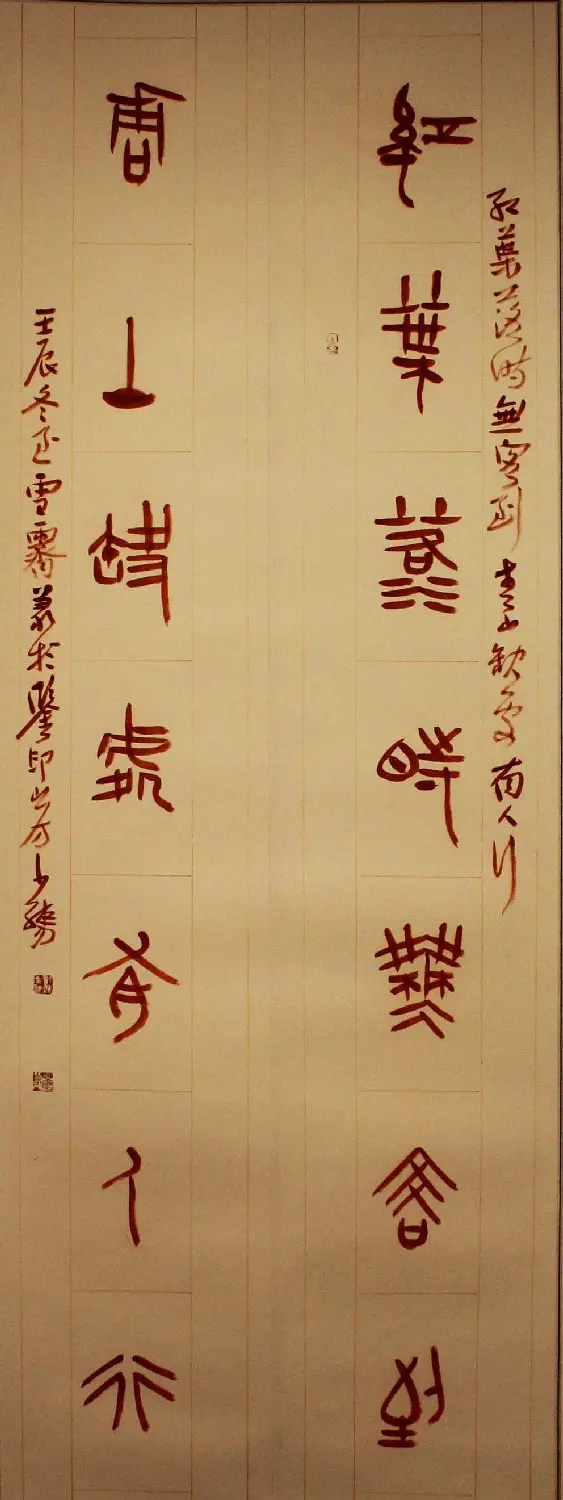 红葉落時無客到青山缺處有人行
紅葉落時無客到
青山缺處有人行
壬辰冬至雪霽篆於鑒印山房少孺